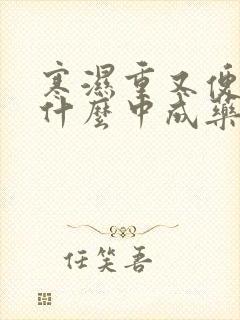 寒濕重又便
什麼中成藥
任笑吾